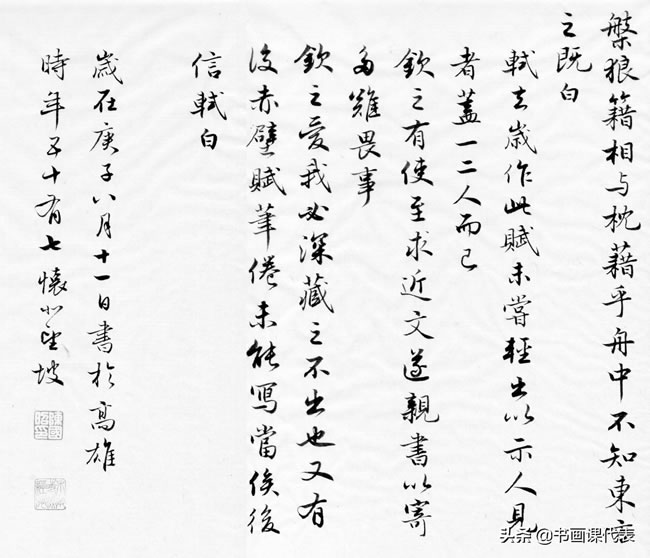 槃狼籍相与枕藉乎舟中不知東方
之既白
軾去歲作此賦未嘗輕出以示人見
者蓋一二人而已
欽之有使至求近文遂親書以寄
多難畏事
欽之愛我必深藏之不出也又有
後赤壁賦筆倦未能寫當俟後
信軾白
歲在庚子八月十一日書於高雄
時年五十有七懷
坡
头条 @书画课代表